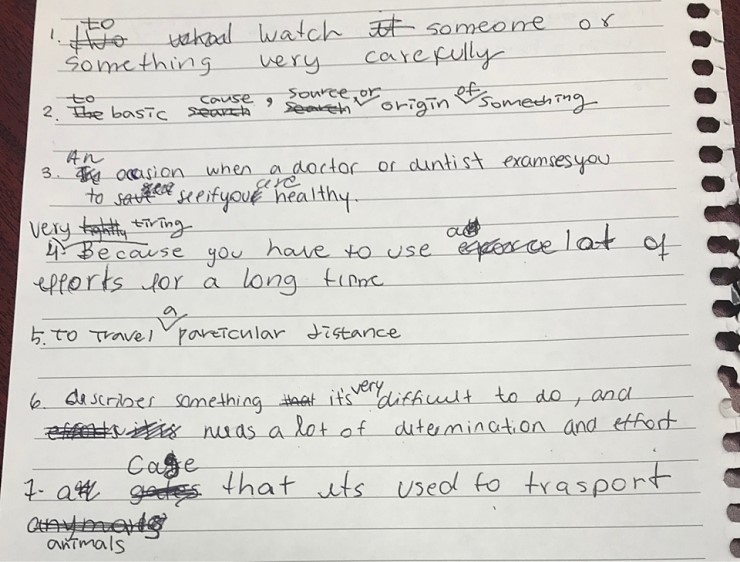 1. to watch someone or
something very carefully
2. to basic cause, source, or origin of something
3. An occasion when a doctor or duntist examsesyou
to seeifyou are healthy.
very tiring
4. Because you have to use a lat of
efforts for a long time
5. To Travel a particular distance
6. describes something it's very difficult to do, and
needs a lot of determination and effort
7- a Cage that its used to trasport
animals